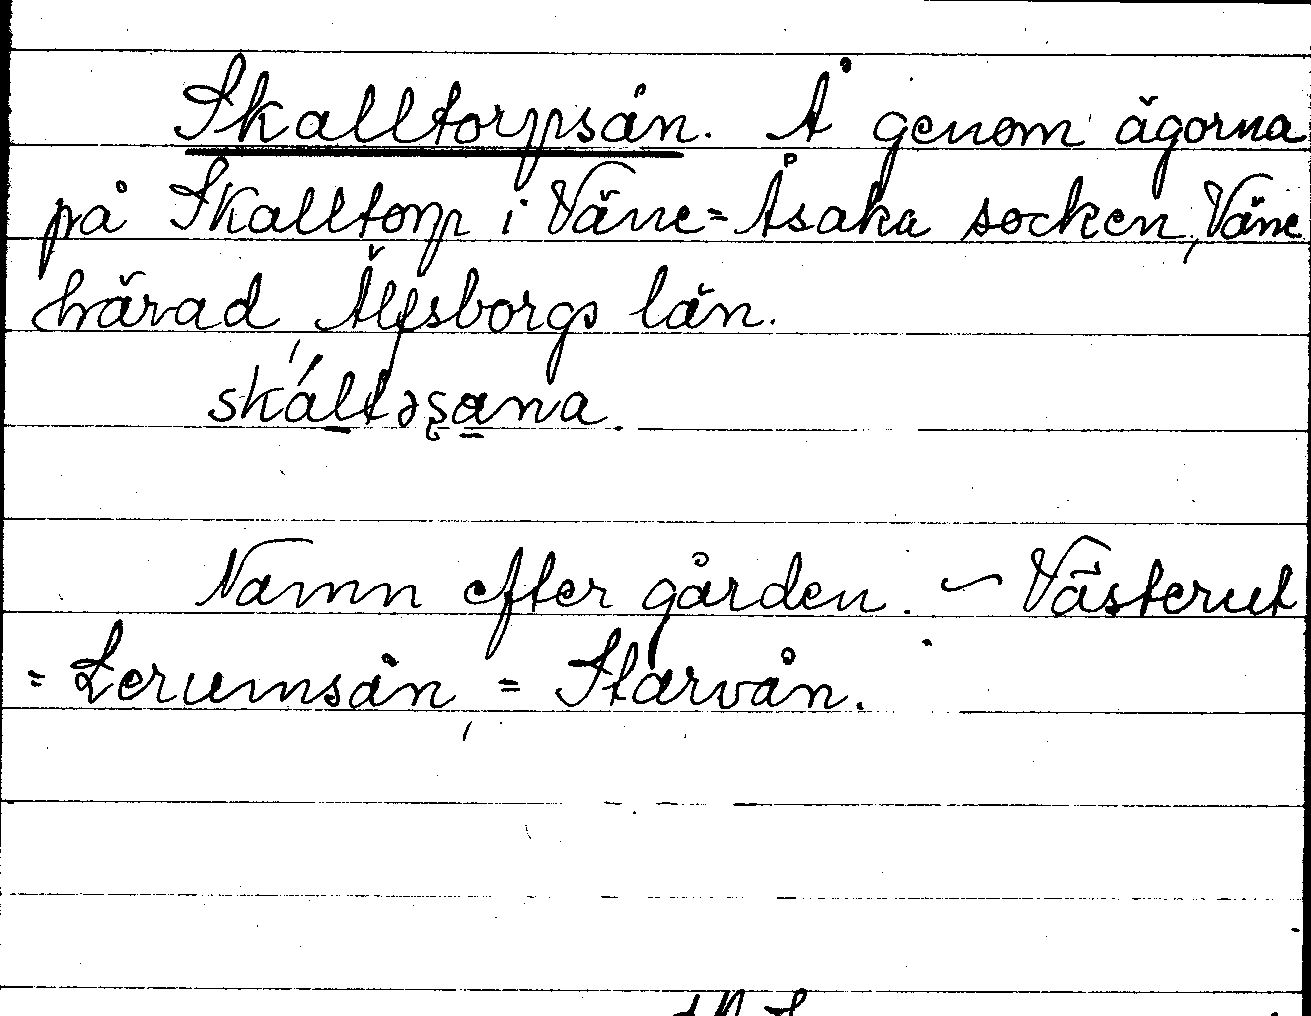 Skalltorpsån. Å genom ägorna
på Skalltorp i Väne=Åsaka socken, Väne
härad, Älfsborgs län.
skáltəşana.
Namn efter gården. ~ Västerut
= Lerumsån, = Starvån.